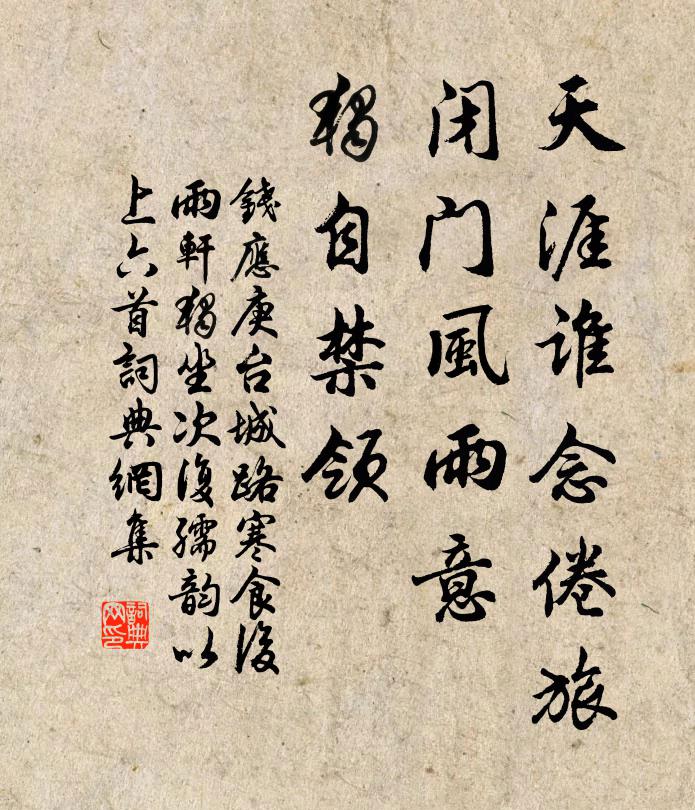 天涯谁念倦旅
闭门風雨意
獨自禁领
錢應庚台城路寒食後
雨軒獨坐次復孺韵以
上六首詞典網集
詞典
网印